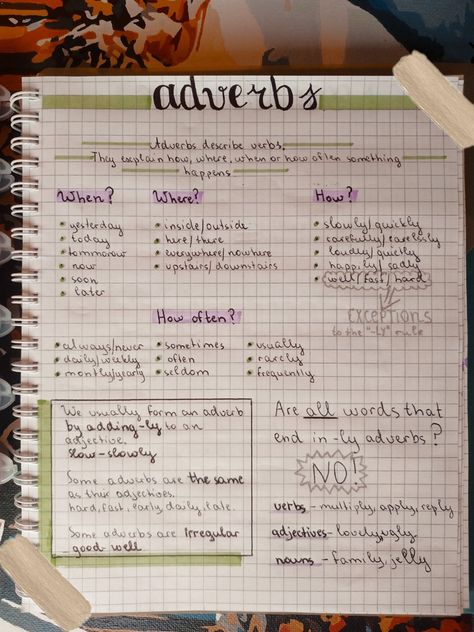 adverbs
Adverbs describe verbs.
They explain how, where, when or how often something
happens
When?
yesterday
today
tommorow
now
soon
later
Where?
inside/outside
here/there
everywhere/nowhere
upstairs/downstairs
How?
slowly/quickly
carefully/carelessly
loudly/quietly
happily/sadly
well/fast/hard
EXCEPTIONS
to the "-LY" rule
How often?
always/never
daily/weekly
montly/yearly
sometimes
often
seldom
usually
rarely
frequently
We usually form an adverb
by adding -ly to an
adjective.
slow-slowly
Some adverbs are the same
as their adjectives.
hard, fast, early, daily, late.
Some adverbs are irregular
-good-well
Are all words that
end in -ly adverbs?
NO!
verbs - multiply, apply, reply
adjectives - lovely, ugly
nouns - family, jelly